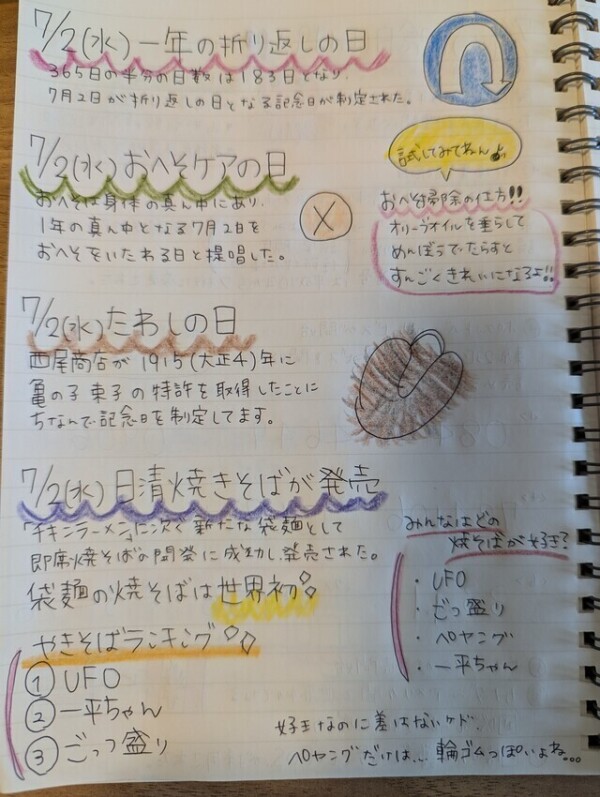 7/2(水)一年の折り返しの日
365日の半分の日数は183日となり、
7月2日が折り返しの日となる記念日が制定された。
7/2(水)おへそケアの日
おへそは身体の真ん中にあり、
1年の真ん中となる7月2日を
おへそをいたわる日と提唱した。
X
試してみてねん♪
おへそ掃除の仕方!!
オリーブオイルを垂らして
めんぼうでたらすと
すんごくきれいになるよ!!
7/2(水)たわしの日
西尾商店が1915(大正4)年に
亀の子束子の特許を取得したことに
ちなんで記念日を制定してます。
7/2(水)日清焼きそばが発売
「チキンラーメン」に次ぐ新たな袋麺として
即席焼そばの開発に成功し発売された。
袋麺の焼そばは世界初
みんなはどの
焼そばが好き?
・UFO
・ごつ盛り
・ペヤング
・一平ちゃん
やきそばランキング
① UFO
② 一平ちゃん
③ ごっつ盛り
好きなのに差はないケド、
ペヤングだけは…輪ゴムっぽいよね…